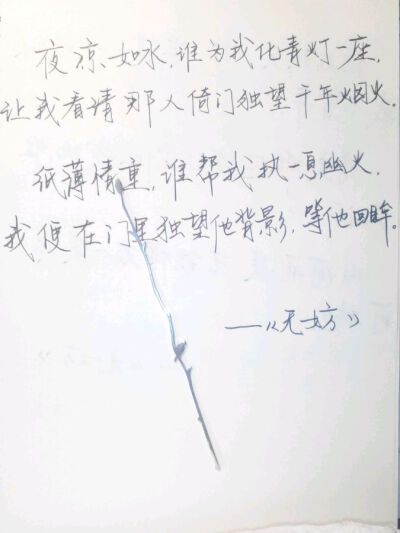 夜凉如水,谁为我化青灯一座,
让我看清那人倚门独望千年烟火。
纸薄情重,谁帮我执一息幽火,
我便在门里独望他背影,等他回眸。
——《无妨》